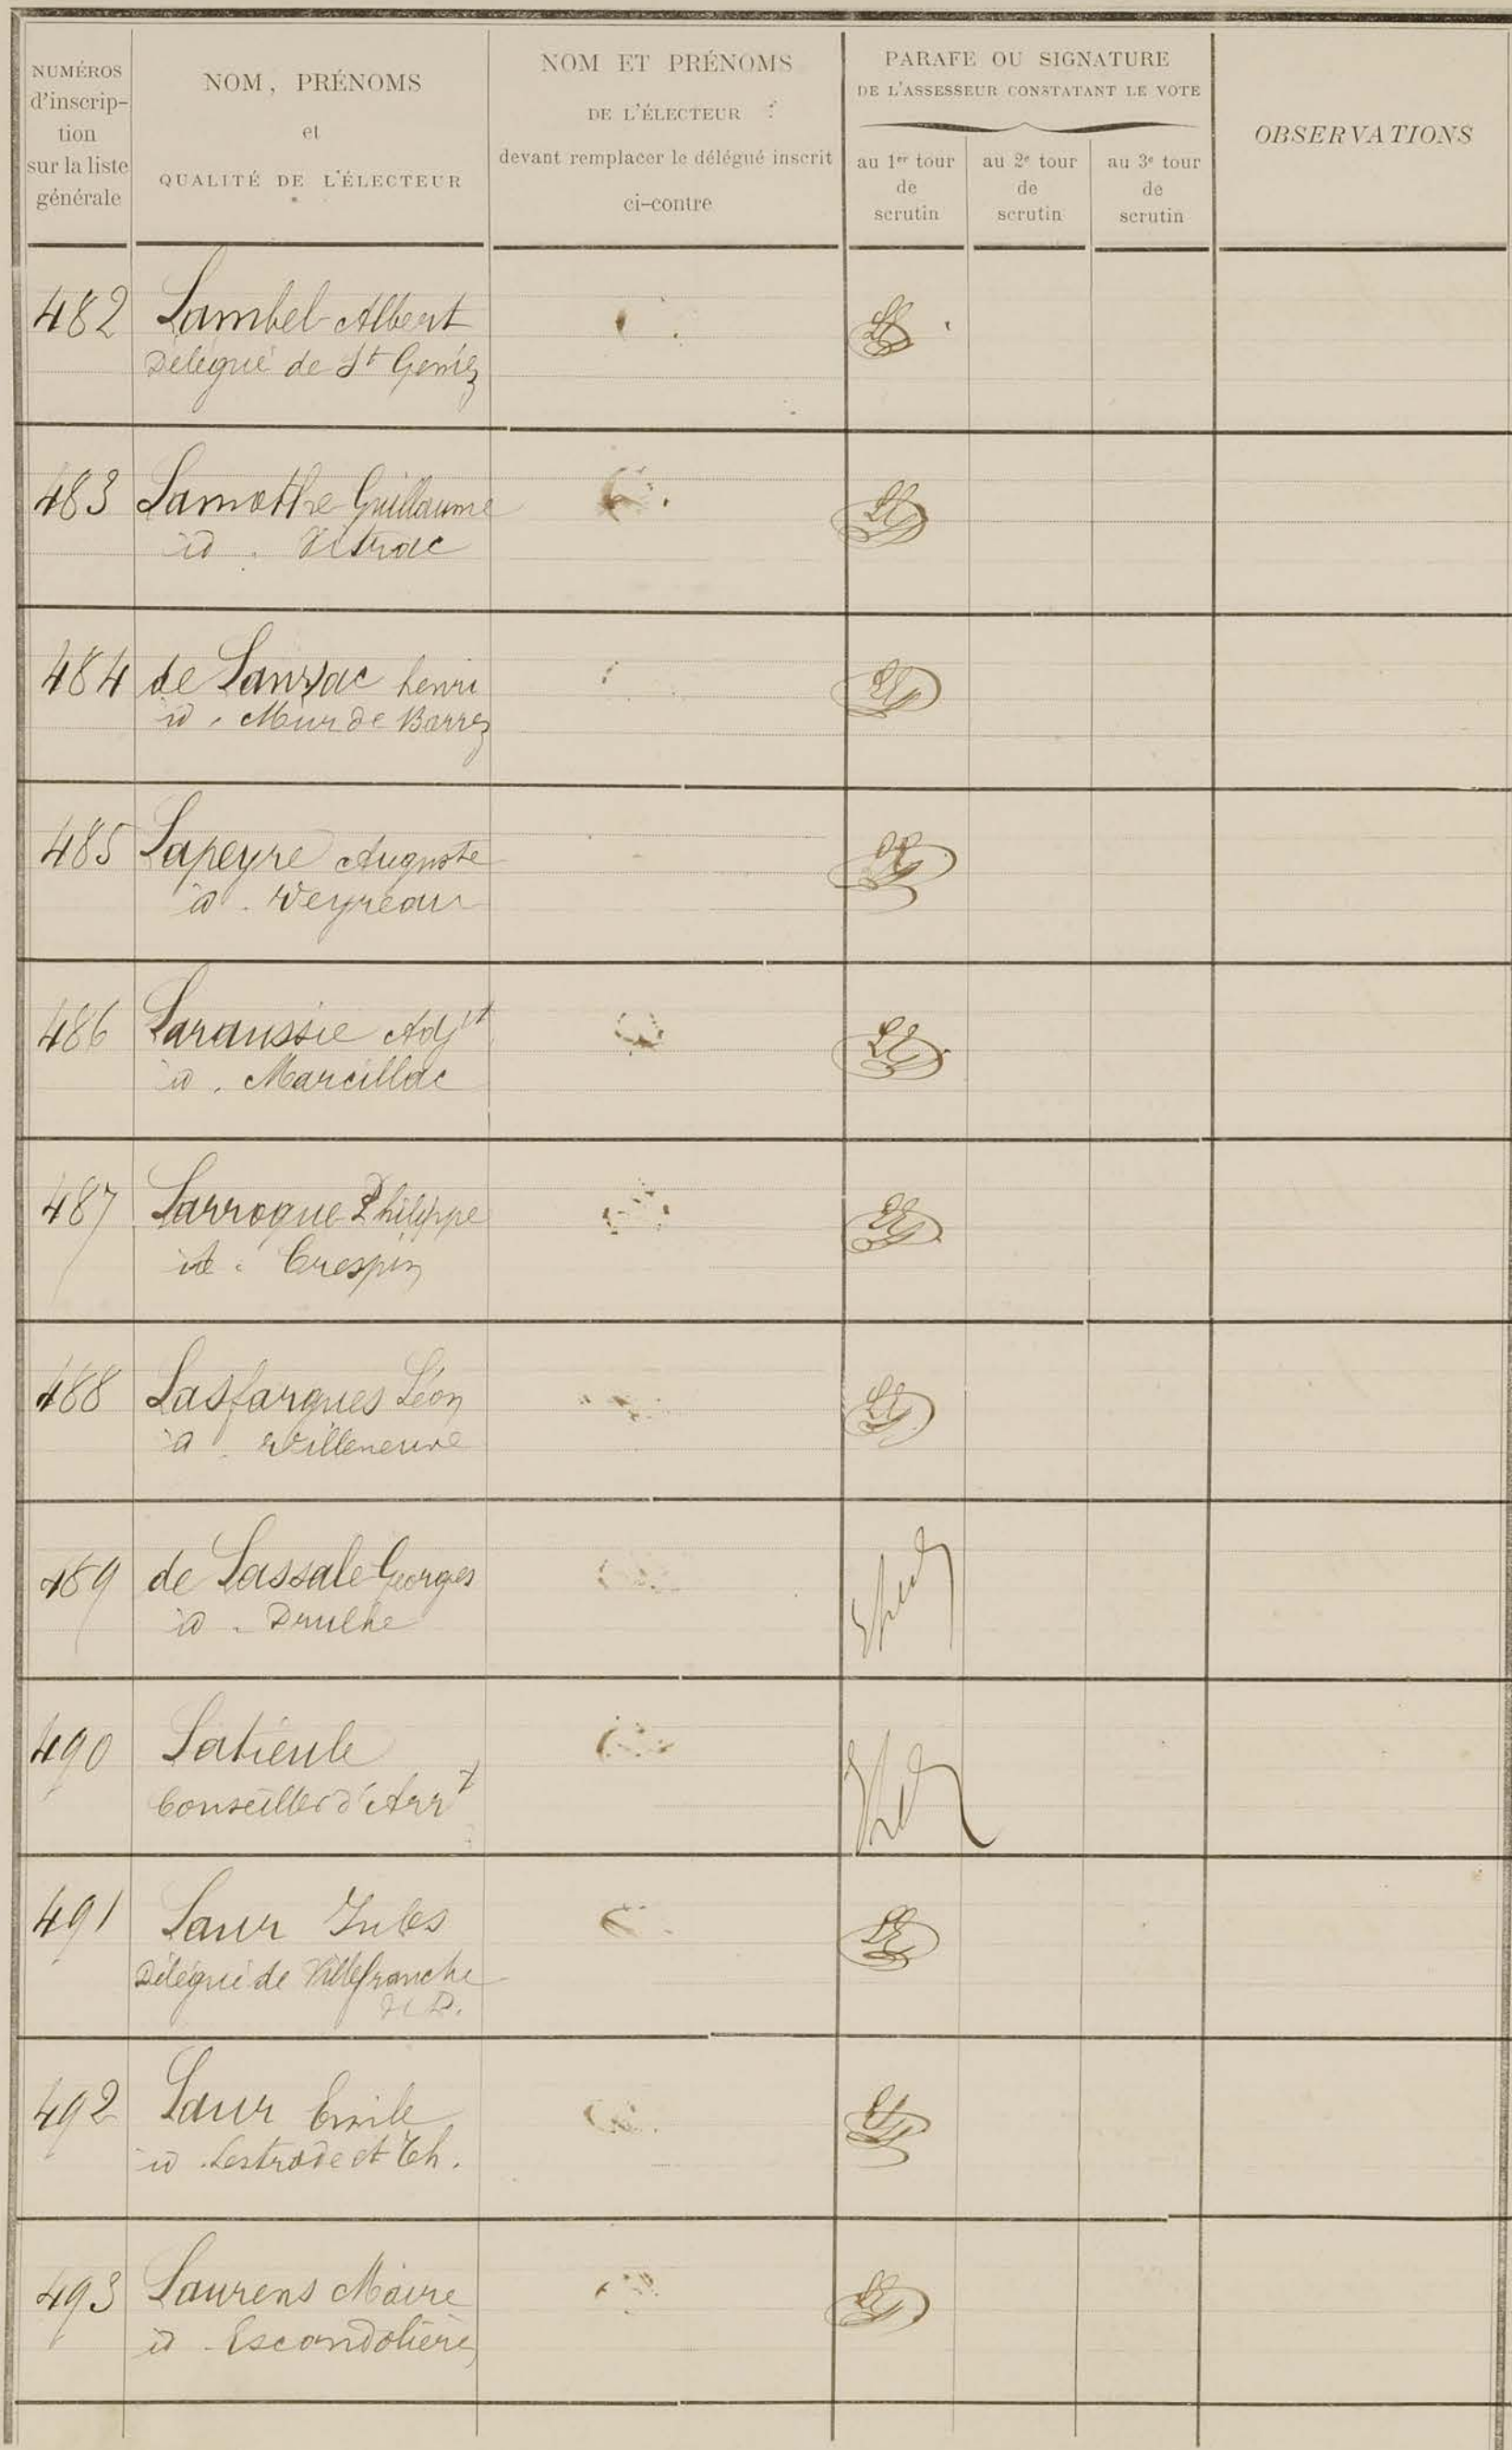 NUMÉROS
d'inscrip-
tion
sur la liste
générale
NOM, PRÉNOMS
et
QUALITÉ DE L'ÉLECTEUR
NOM ET PRÉNOMS
DE L'ÉLECTEUR
devant remplacer le délégué inscrit
ci-contre
PARAFE OU SIGNATURE
DE L'ASSESSEUR CONSTATANT LE VOTE
au 1er tour
de
scrutin
au 2e tour
de
scrutin
au 3e tour
de
scrutin
OBSERVATIONS
482 Lambel Albert
Délégué de St Geniez
483 Lamothe Guillaume
id. Vitrac
484 de Lanzac henri
id. Mur de Barrez
485 Lapeyre Auguste
id. Veyreau
486 Laraussie Adjt
id. Marcillac
487 Larroque Philippe
id. Crespin
488 Lasfargues Léon
id. Villeneuve
489 de Lassale Georges
id. Drulhe
490 Latieule
Conseiller d'Arrt
491 Laur Jules
Délégué de Villefranche
de P.
492 Laur Emile
id. Lestrade et Th.
493 Laurens Maire
id. Escandolières